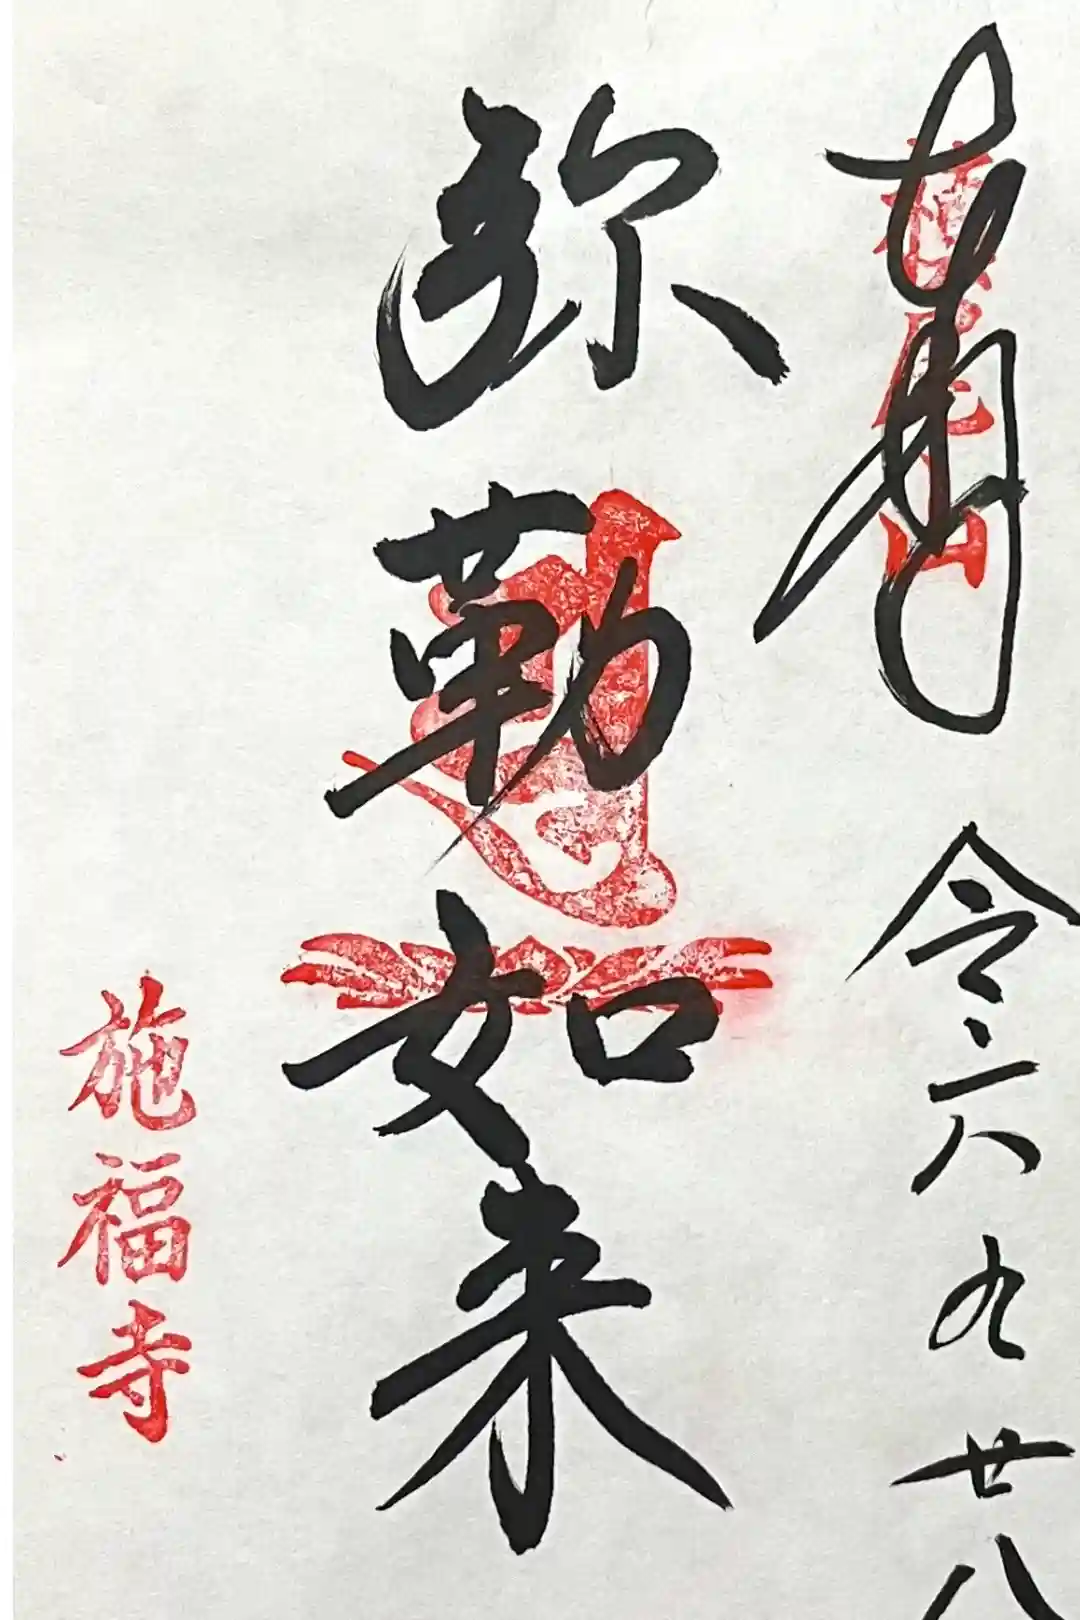 奉拝 令六 九 廿八
槇尾山
弥勒如来
施福寺